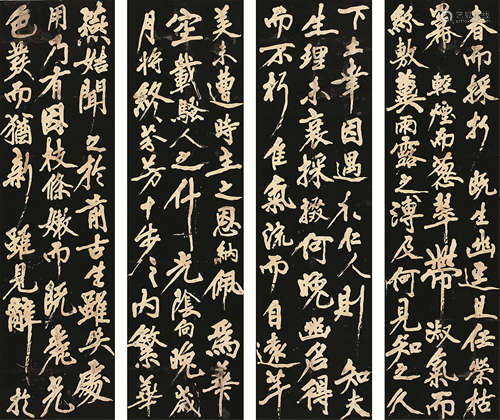 春而採折既生幽逕且任榮枯
冪輕煙而葱翠帶淑氣而
紛敷冀雨露之溥及何見知之久
下士幸因遇於仁人則知夫
生理未衰採掇何晚幽名得
而不朽佳氣流而自遠羊
美未遭時主之恩納佩爲華
空載騷人之什光陰向晚歲
月將終芬芳十步之内繁華
燕姞聞之於前古生雖失處
用乃有因枝條嫩而既麗光
色發而猶新雖見解於